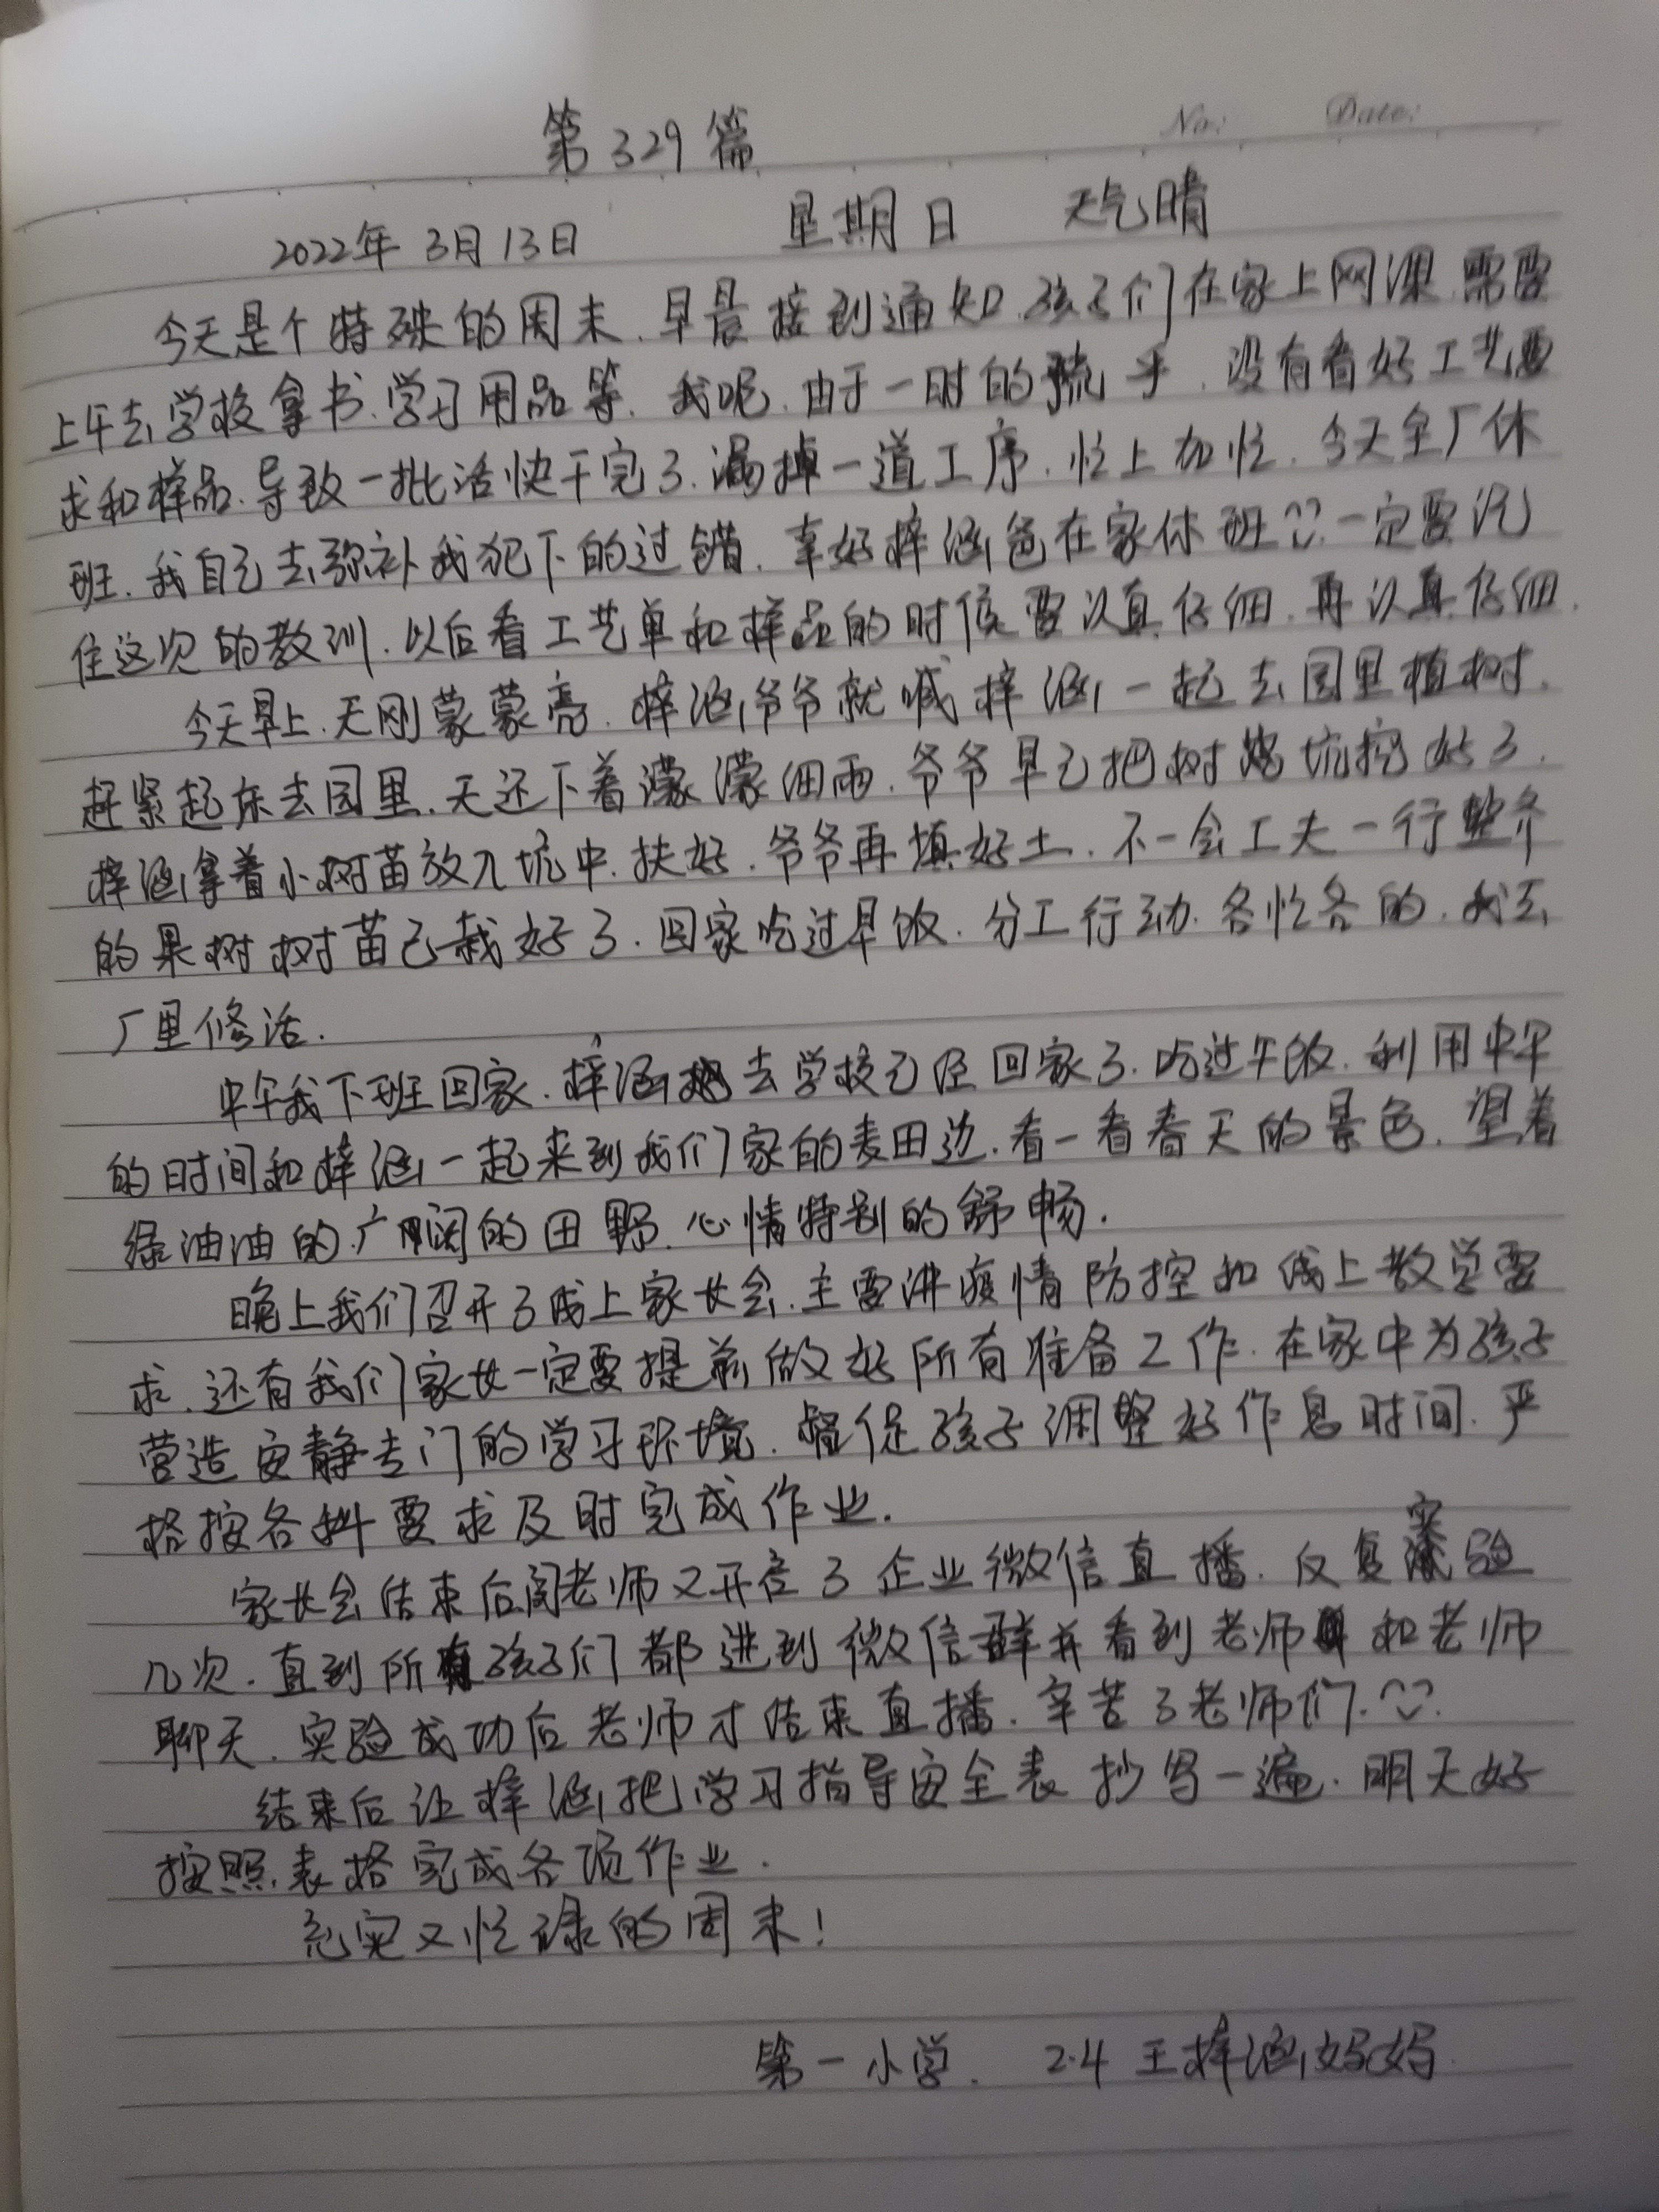 No: Date:
第329篇
2022年3月13日 星期日 天气晴
今天是个特殊的周末.早晨接到通知.孩子们在家上网课.需要
上午去学校拿书.学习用品等.我呢.由于一时的疏乎.没有看好工艺要
求和样品.导致一批活快干完了.漏掉一道工序.忙上加忙.今天全厂休
班.我自己去弥补我犯下的过错.幸好梓涵爸在家休班.一定要记
住这次的教训.以后看工艺单和样品的时候要认真仔细.再认真仔细.
今天早上.天刚蒙蒙亮.梓涵爷爷就喊梓涵一起去园里植树.
赶紧起床去园里.天还下着濛濛细雨.爷爷早已把树坑挖好了.
梓涵拿着小树苗放入坑中.扶好.爷爷再填好土.不一会工夫一行整齐
的果树树苗已栽好了.回家吃过早饭.分工行动.各忙各的.我去
厂里修活.
中午我下班回家.梓涵去学校已经回家了.吃过午饭.利用中午
的时间和梓涵一起来到我们家的麦田边.看一看春天的景色.望着
绿油油的广阔的田野.心情特别的舒畅.
晚上我们召开了线上家长会.主要讲疫情防控和线上教学要
求.还有我们家长一定要提前做好所有准备工作.在家中为孩子
营造安静专门的学习环境.督促孩子调整好作息时间.严
格按各科要求及时完成作业.
家长会结束后闫老师又开启了企业微信直播.反复实验
几次.直到所有孩子们都进到微信群并看到老师和老师
聊天.实验成功后老师才结束直播.辛苦了老师们.
结束后让梓涵把学习指导安全表抄写一遍.明天好
按照表格完成各项作业.
充实又忙碌的周末!
第一小学. 2.4 王梓涵妈妈